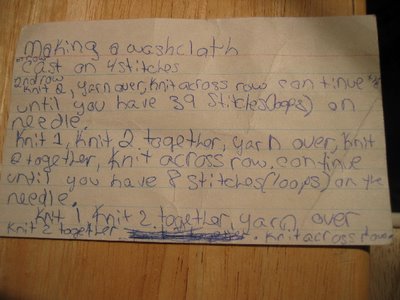 Making a washcloth
cast on 4 stitches
2nd row
knit 2, yarn over, knit across row continue
until you have 39 stitches(loops) on
needle.
Knit 1, Knit 2 together, yarn over, Knit
2 together, knit across row. continue
until you have 8 stitches(loops) on the
needle.
Knit 1, Knit 2 together, yarn over
Knit 2 together. Knit across row.